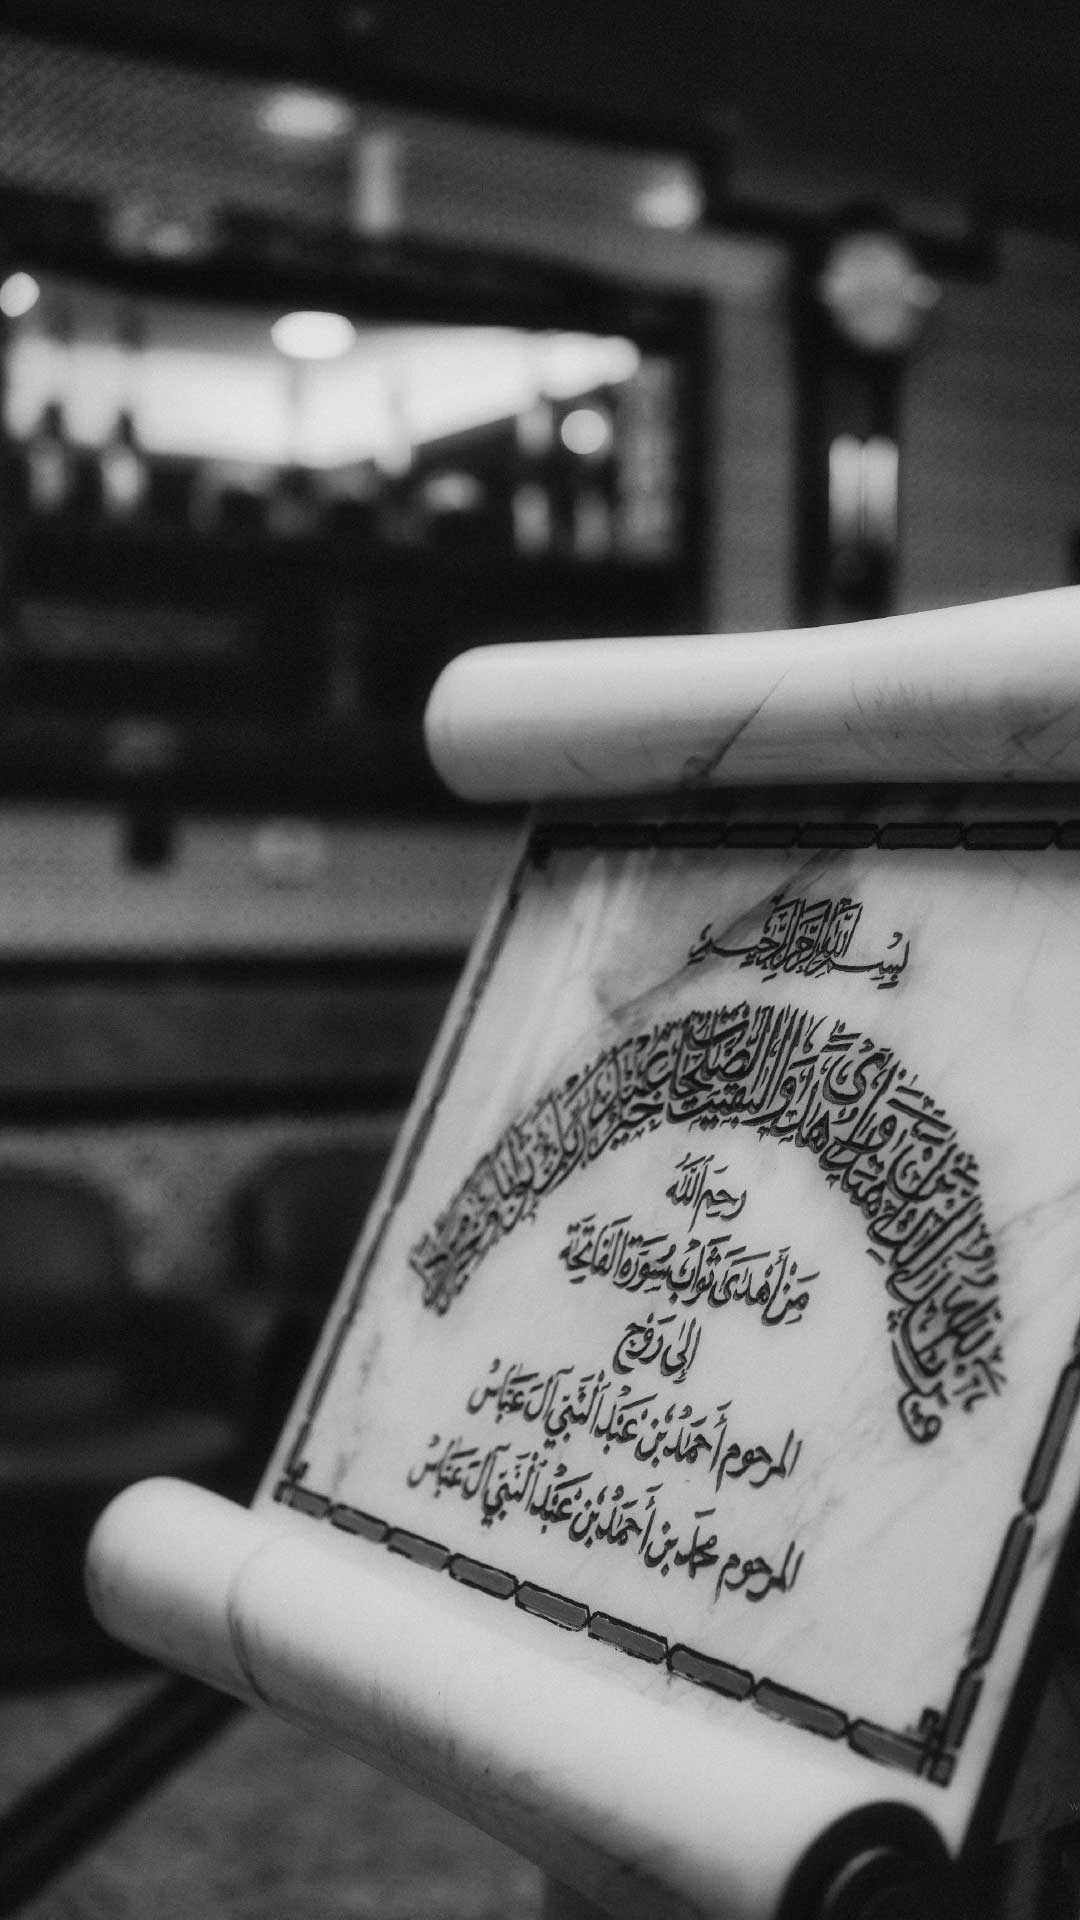 بسم الله الرحمن الرحيم
ويزيد الله الذين اهتدوا هدى والبقيت الصلحت خير عند ربك ثوابا وخير مردا
رَحِمَ اللَّهُ
مَنْ أَهْدَىٰ ثَوَابَ سُورَةَ الْفَاتِحَة
إِلىٰ رَوْحِ
المرحوم أَحمَدْ بْن عَبْدْ النَّبِي آل عَبّاسْ
المرحوم محمد بن أَحمَدْ بْن عَبْدْ النَّبِي آل عَبّاسْ